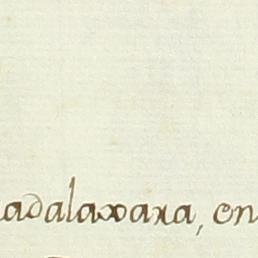 adalaxara, en